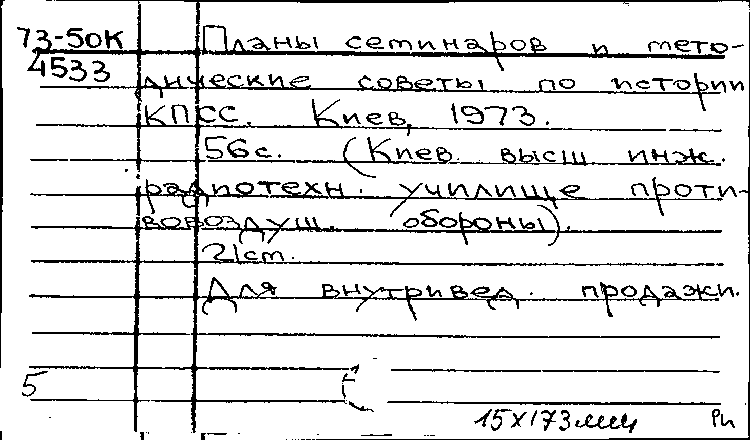 73-50К Планы семинаров и мето-
4533 дические советы по истории
КПСС. Киев, 1973.
56 с. (Киев. высш инж.
радиотехн. училище проти-
вовоздуш. обороны).
21 cm.
Для внутривед. продажи.
5